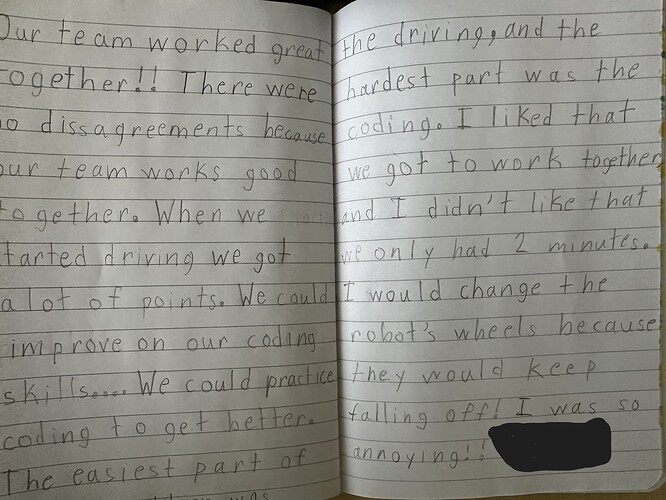 Our team worked great
together!! There were
no dissagreements because
our team works good
together. When we
started driving we got
a lot of points. We could
improve on our coding
skills.... We could practice
coding to get better.
The easiest part of
was
the driving, and the
hardest part was the
coding. I liked that
we got to work together
and I didn't like that
we only had 2 minutes.
I would change the
robot's wheels because
they would keep
falling off! I was so
annoying!!